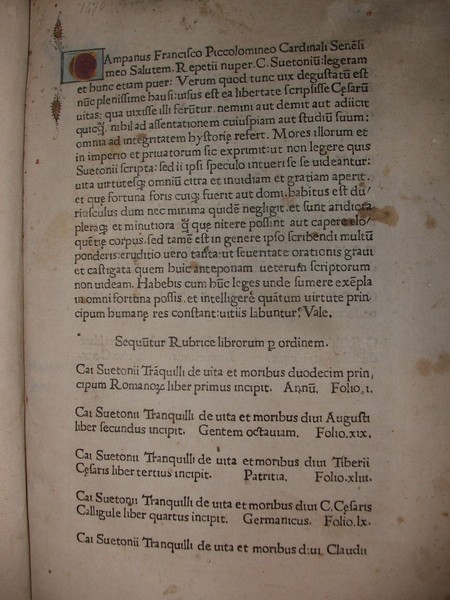 1470
CAmpanus Francisco Piccolomineo Cardinali Senēsi
meo Salutem. Repetii nuper. C. Suetoniū: legeram
et hunc etiam puer: Verum quod tunc uix degustatū est
nūc plenissime hausi: uisus est ea libertate scripsisse Cęsarū
uitas: qua uixisse illi ferūtur. nemini aut demit aut adiicit
quicꝗ. nibil ad assentationem cuiuspiam aut studiū suum:
omnia ad integritatem bystorię refert. Mores illorum et
in imperio et priuatorum sic exprimit: ut non legere quis
Suetonii scripta: sed ii ipsi speculo intueri se se uideantur:
uita uirtutesꝗ omniū citra et inuidiam et gratiam aperit.
et quę fortuna foris cuiꝗ fuerit aut domi. habitus est du/
riusculus dum nec minima quidē negligit. et sunt aridiora
pleraꝗ et minutiora ꝗ que nitere possint aut capere elo/
quētię corpus. sed tamē est in genere ipso scribendi multū
ponderis: eruditio uero tanta: ut seueritate orationis graui
et castigata quem huic anteponam ueterum scriptorum
non uideam. Habebis cum hūc leges unde sumere exēpla
in omni fortuna possis. et intelligere quātum uirtute prin/
cipum humanę res constant: uitiis labuntur. Vale.
Sequūtur Rubrice librorum p ordinem.
Cai Suetonii Trāquilli de uita et moribus duodecim prin/
cipum Romanoꝝ liber primus incipit. Annū. Folio .i.
Cai Suetonii Tranquilli de uita et moribus diui Augusti
liber secundus incipit. Gentem octauiam. Folio. xix.
Cai Suetonii Tranquilli de uita et moribus diui Tiberii
Cęsaris liber tertius incipit. Patritia. Folio. xliii.
Cai Suetonii Tranquilli de uita et moribus diui C. Cęsaris
Calligule liber quartus incipit. Germanicus. Folio. lx.
Cai Suetonii Tranquilli de uita et moribus diui Claudii